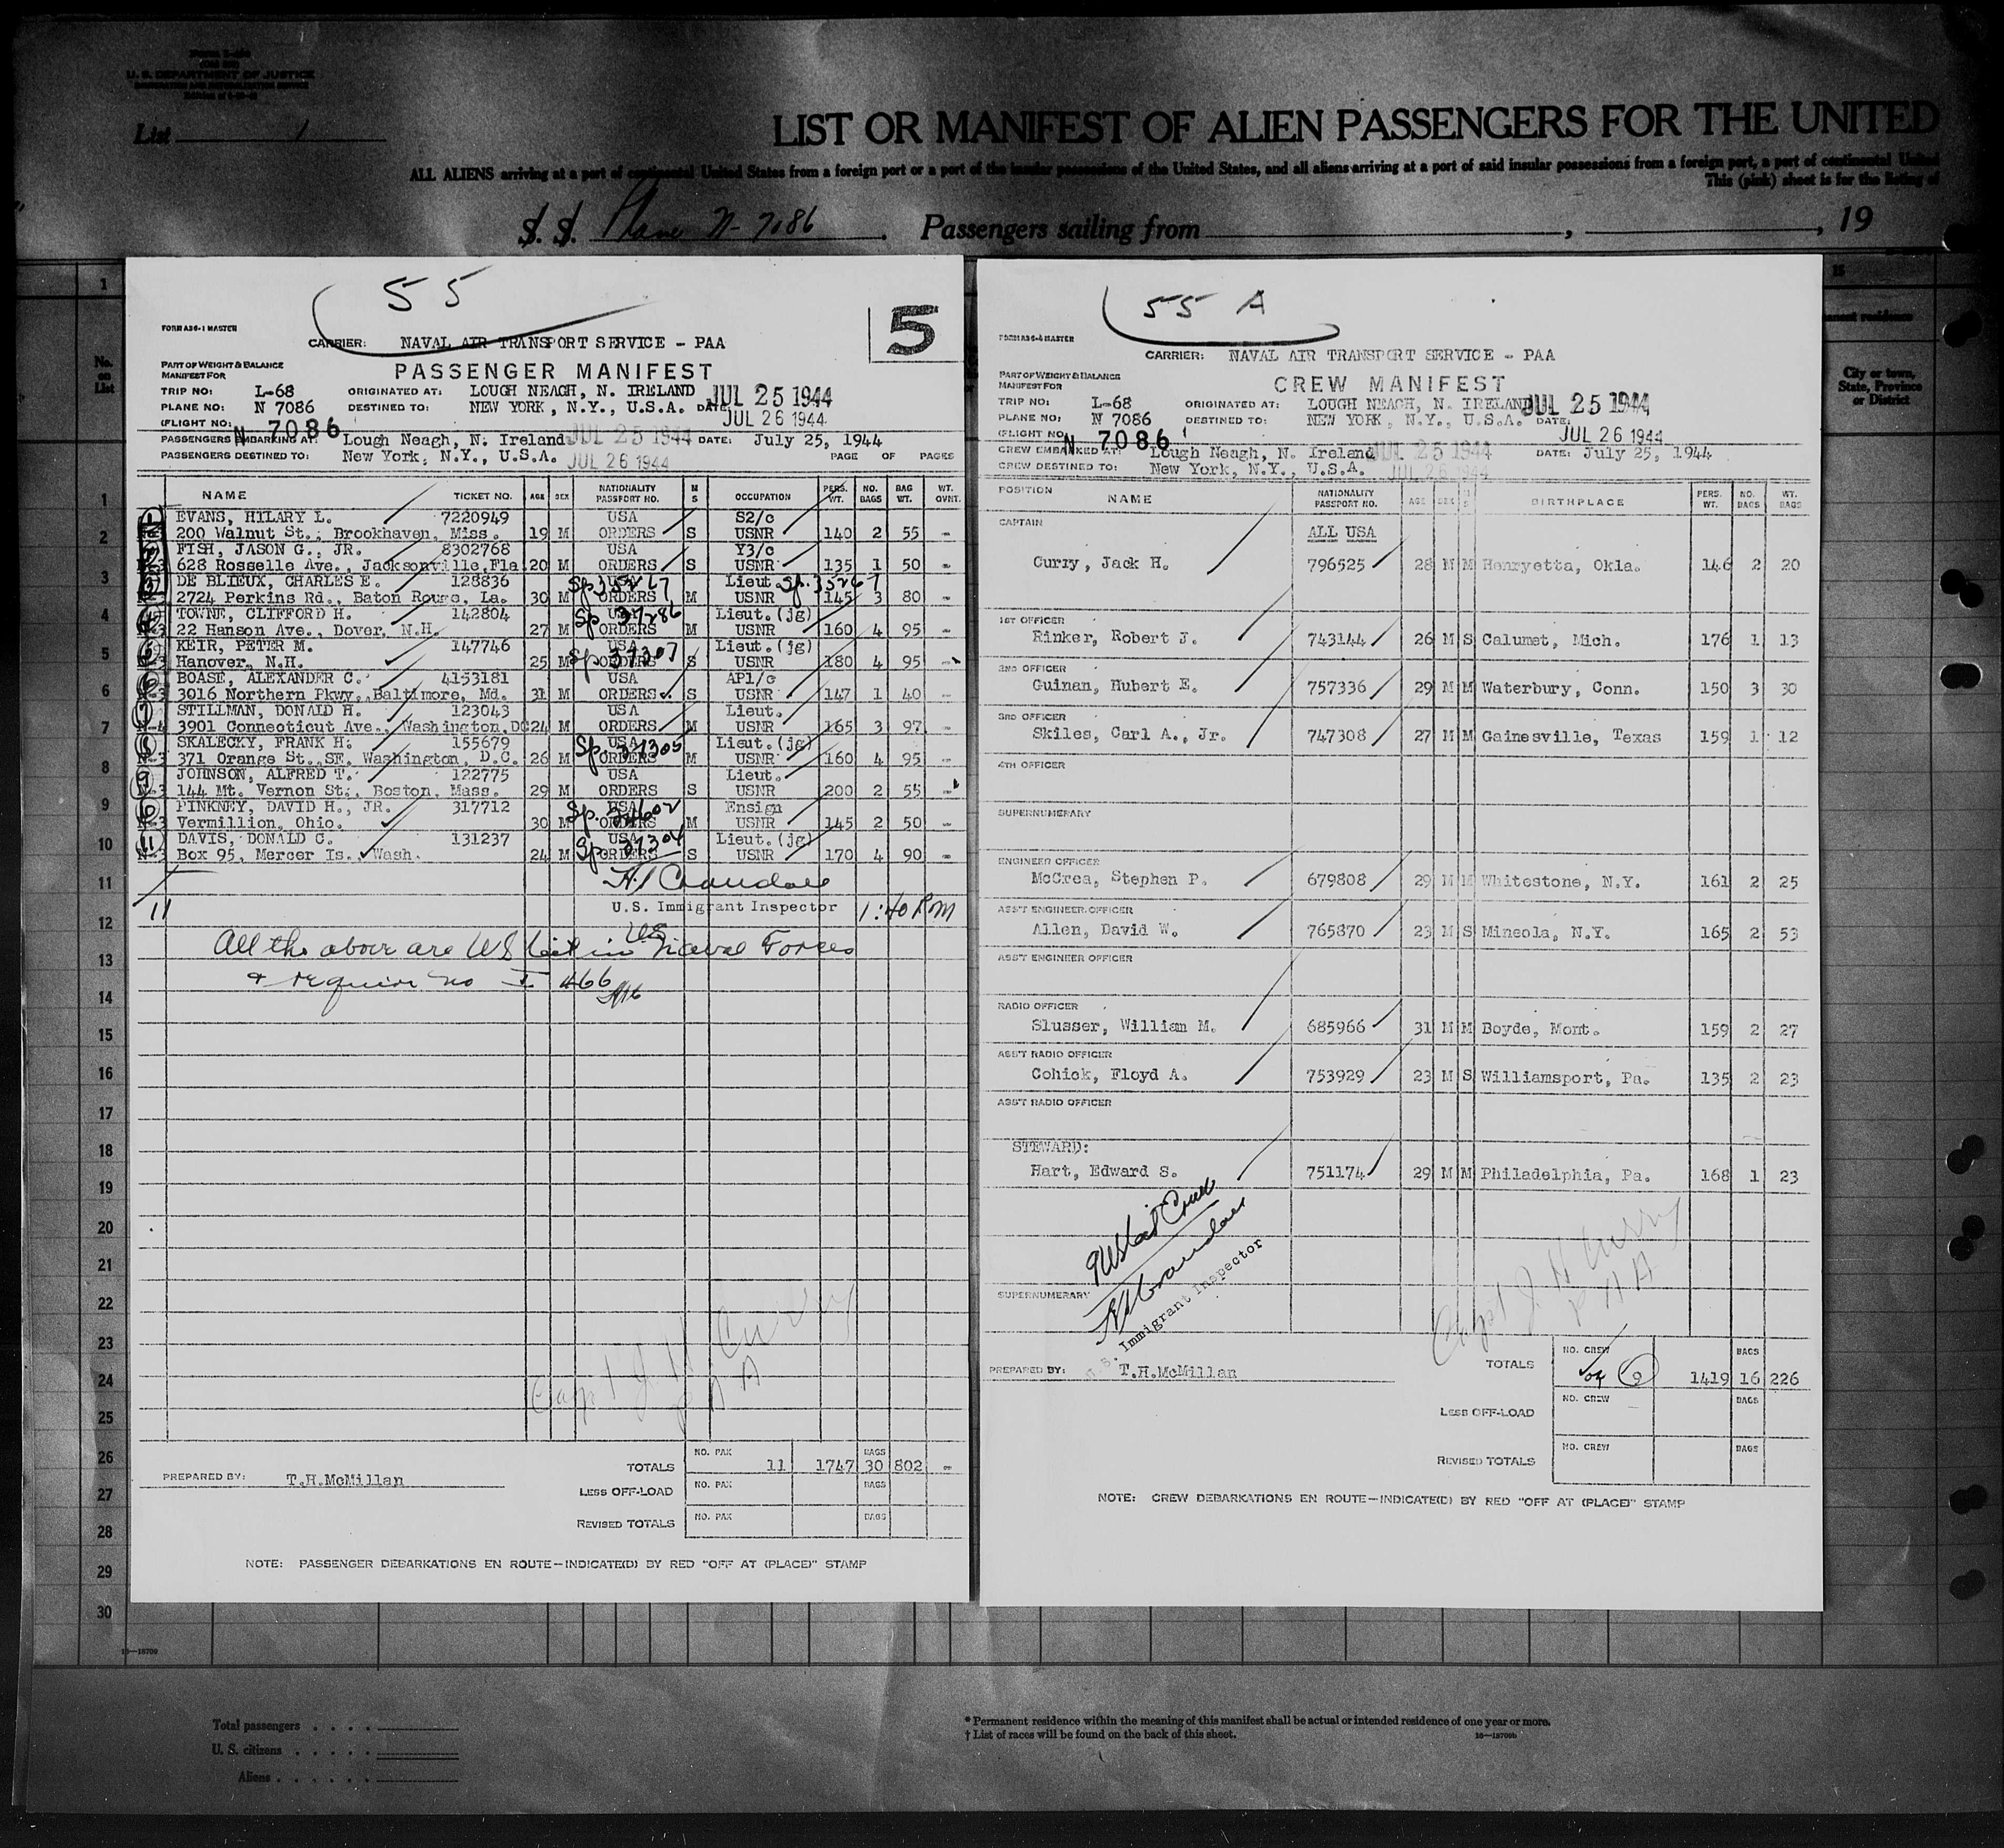 U. S. DEPARTMENT OF JUSTICE
List 1
LIST OR MANIFEST OF ALIEN PASSENGERS FOR THE UNITED
ALL ALIENS arriving at a port of continental United States from a foreign port or a port of the insular possessions of the United States, and all aliens arriving at a port of said insular possessions from a foreign port, a port of continental United
This (pink) sheet is for the listing of
S. S. Plane N-7086. Passengers sailing from , , 19
No. on List
55
5
FORM A36-1 MASTER
CARRIER: NAVAL AIR TRANSPORT SERVICE - PAA
PART OF WEIGHT & BALANCE
MANIFEST FOR
PASSENGER MANIFEST
TRIP NO: L-68 ORIGINATED AT: LOUGH NEAGH, N. IRELAND JUL 25 1944
PLANE NO: N 7086 DESTINED TO: NEW YORK, N.Y., U.S.A. DATE: JUL 26 1944
(FLIGHT NO. N 7086
PASSENGERS EMBARKING AT: Lough Neagh, N. Ireland JUL 25 1944 DATE: July 25, 1944
PASSENGERS DESTINED TO: New York, N.Y., U.S.A. JUL 26 1944 PAGE OF PAGES
NAME TICKET NO. AGE SEX NATIONALITY PASSPORT NO. M S OCCUPATION PERS. WT. NO. BAGS BAG WT. WT. OVNT.
1 EVANS, HILARY L. 7220949 USA S2/c
200 Walnut St., Brookhaven, Miss. 19 M ORDERS S USNR 140 2 55 -
2 FISH, JASON G., JR. 8302768 USA Y3/c
628 Rosselle Ave., Jacksonville, Fla. 20 M ORDERS S USNR 135 1 50 -
3 DE BLIEUX, CHARLES E. 128836 USA Sp. 35267 Lieut. Sp. 35267
2724 Perkins Rd., Baton Rouge, La. 30 M ORDERS M USNR 145 3 80 -
4 TOWNE, CLIFFORD H. 142804 USA Sp 37286 Lieut. (jg)
22 Hanson Ave., Dover, N.H. 27 M ORDERS M USNR 160 4 95 -
5 KEIR, PETER M. 147746 USA Sp. 37307 Lieut. (jg)
Hanover, N.H. 25 M ORDERS S USNR 180 4 95 -
6 BOASE, ALEXANDER C. 4153181 USA AP1/c
3016 Northern Pkwy, Baltimore, Md. 31 M ORDERS S USNR 147 1 40 -
7 STILLMAN, DONALD H. 123043 USA Lieut.
3901 Connecticut Ave., Washington, DC 24 M ORDERS M USNR 165 3 97 -
8 SKALECKY, FRANK H. 155679 USA Sp. 37305 Lieut. (jg)
371 Orange St., SE, Washington, D.C. 26 M ORDERS M USNR 160 4 95 -
9 JOHNSON, ALFRED T. 122775 USA Lieut.
144 Mt. Vernon St., Boston, Mass. 29 M ORDERS S USNR 200 2 55 -
10 PINKNEY, DAVID H., JR. 317712 USA Sp. 34602 Ensign
Vermillion, Ohio. 30 M ORDERS M USNR 145 2 50 -
11 DAVIS, DONALD C. 131237 USA Sp 37304 Lieut. (jg)
Box 95, Mercer Is., Wash. 24 M ORDERS S USNR 170 4 90 -
11
U.S. Immigrant Inspector 1:40 PM
All the above are US cit in US Naval Forces
& require no I 466
Capt J. H. Curry
PAA
PREPARED BY: T.H.McMillan
TOTALS NO. PAX 11 1747 BAGS 30 802 -
LESS OFF-LOAD NO. PAX BAGS
REVISED TOTALS NO. PAX BAGS
NOTE: PASSENGER DEBARKATIONS EN ROUTE—INDICATE(D) BY RED "OFF AT (PLACE)" STAMP
55 A
FORM A36-4 MASTER
CARRIER: NAVAL AIR TRANSPORT SERVICE - PAA
PART OF WEIGHT & BALANCE
MANIFEST FOR
CREW MANIFEST
TRIP NO: L-68 ORIGINATED AT: LOUGH NEAGH, N. IRELAND JUL 25 1944
PLANE NO: N 7086 DESTINED TO: NEW YORK, N.Y., U.S.A. DATE: JUL 26 1944
(FLIGHT NO. N 7086
CREW EMBARKED AT: Lough Neagh, N. Ireland JUL 25 1944 DATE: July 25, 1944
CREW DESTINED TO: New York, N.Y., U.S.A. JUL 26 1944
POSITION NAME NATIONALITY PASSPORT NO. AGE SEX M S BIRTHPLACE PERS. WT. NO. BAGS WT. BAGS
CAPTAIN ALL USA
Curry, Jack H. 796525 28 M M Henryetta, Okla. 146 2 20
1ST OFFICER
Rinker, Robert J. 743144 26 M S Calumet, Mich. 176 1 13
2ND OFFICER
Guinan, Hubert E. 757336 29 M M Waterbury, Conn. 150 3 30
3RD OFFICER
Skiles, Carl A., Jr. 747308 27 M M Gainesville, Texas 159 1 12
4TH OFFICER
SUPERNUMERARY
ENGINEER OFFICER
McCrea, Stephen P. 679808 29 M M Whitestone, N.Y. 161 2 25
ASS'T ENGINEER OFFICER
Allen, David W. 765870 23 M S Mineola, N.Y. 165 2 53
ASS'T ENGINEER OFFICER
RADIO OFFICER
Slusser, William M. 685966 31 M M Boyde, Mont. 159 2 27
ASS'T RADIO OFFICER
Cohick, Floyd A. 753929 23 M S Williamsport, Pa. 135 2 23
ASS'T RADIO OFFICER
STEWARD:
Hart, Edward S. 751174 29 M M Philadelphia, Pa. 168 1 23
9 US Cit Crew
U.S. Immigrant Inspector
SUPERNUMERARY
Capt J. H Curry
PAA
PREPARED BY: T.H.McMillan
TOTALS NO. CREW 9 1419 BAGS 16 226
LESS OFF-LOAD NO. CREW BAGS
REVISED TOTALS NO. CREW BAGS
NOTE: CREW DEBARKATIONS EN ROUTE—INDICATE(D) BY RED "OFF AT (PLACE)" STAMP
15
City or town, State, Province or District
1
2
3
4
5
6
7
8
9
10
11
12
13
14
15
16
17
18
19
20
21
22
23
24
25
26
27
28
29
30
16—18709
Total passengers
U. S. citizens
Aliens
* Permanent residence within the meaning of this manifest shall be actual or intended residence of one year or more.
† List of races will be found on the back of this sheet. 16—18709b